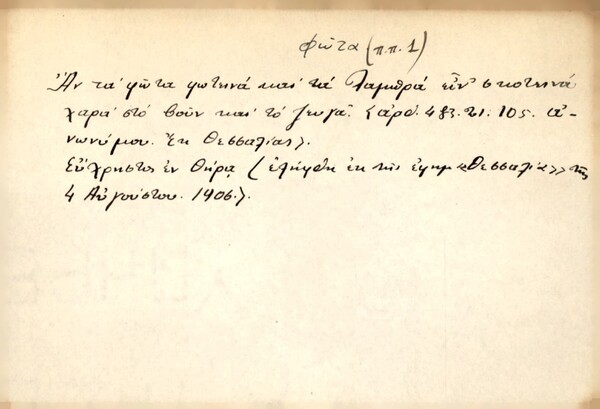 φῶτα (π.π. 1)
Ἂν τὰ φῶτα φωτεινά καὶ τὰ Λαμπρά εἶν' σκοτεινά
χαρὰ στὸ βοῦν καὶ τὸ ζευγᾶ. <ἀρθ. 483. σι. 105. ἀ-
νωνύμου. Ἐκ Θεσσαλίας>.
Εὔχρηστος ἐν Θήρᾳ (ἐλήφθη ἐκ τῆς ἐφημ «Θεσσαλία» τῆς
4 Αὐγούστου. 1906.).